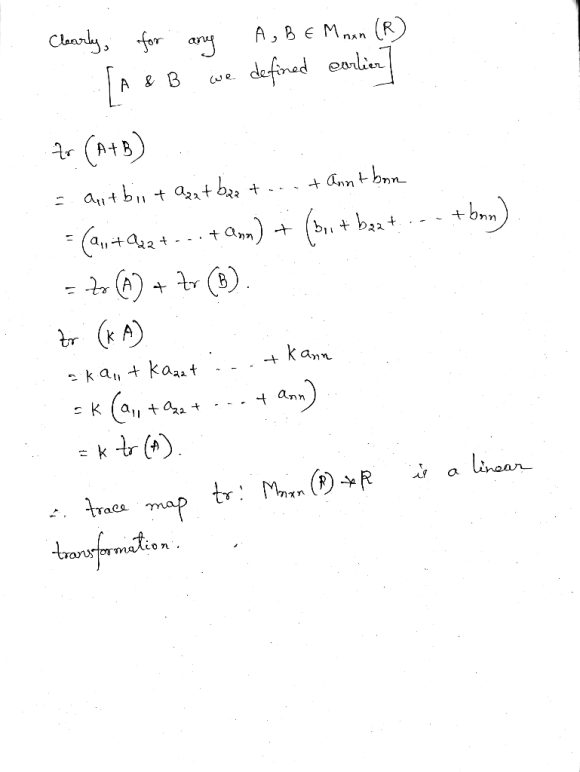 Clearly, for any A, B ∈ Mnxn (R)
[A & B we defined earlier]
tr (A+B)
= a11 + b11 + a22 + b22 + - - - + ann + bnn
= (a11 + a22 + - - - + ann) + (b11 + b22 + - - - - + bnn)
= tr (A) + tr (B).
tr (kA)
= k a11 + k a22 + - - - + k ann
= k (a11 + a22 + - - - + ann)
= k tr (A).
∴ trace map tr : Mnxn (R) → R is a linear
transformation.